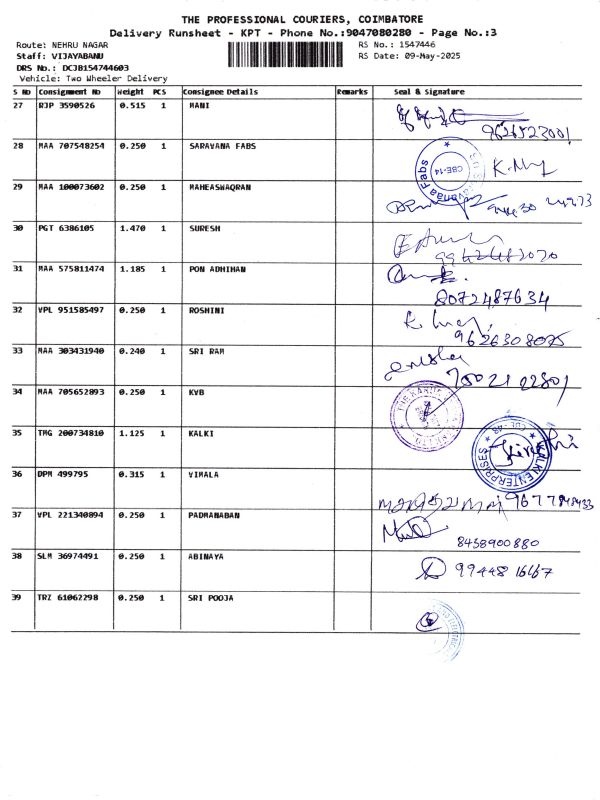 THE PROFESSIONAL COURIERS, COIMBATORE
Delivery Runsheet - KPT - Phone No.:9047080280 - Page No.:3
Route: NEHRU NAGAR RS No.: 1547446
Staff: VIJAYABANU RS Date: 09-May-2025
DRS No.: DCJB154744603
Vehicle: Two Wheeler Delivery
S No Consignment No Weight PCS Consignee Details Remarks Seal & Signature
27 RJP 3590526 0.515 1 MANI
9626523001
28 MAA 707548254 0.250 1 SARAVANA FABS
CBE-14
29 MAA 100073602 0.250 1 MAHEASWAQRAN
30 PGT 6386105 1.470 1 SURESH
31 MAA 575811474 1.185 1 PON ADHIHAN
8072487634
32 VPL 951585497 0.250 1 ROSHINI
9626308075
33 MAA 303431940 0.240 1 SRI RAM
34 MAA 705652893 0.250 1 KVB
35 TMG 200734810 1.125 1 KALKI
KALKI ENTERPRISES
36 DPM 499795 0.315 1 VIMALA
37 VPL 221340894 0.250 1 PADMANABAN
8438900880
38 SLM 36974491 0.250 1 ABINAYA
39 TRZ 61062298 0.250 1 SRI POOJA